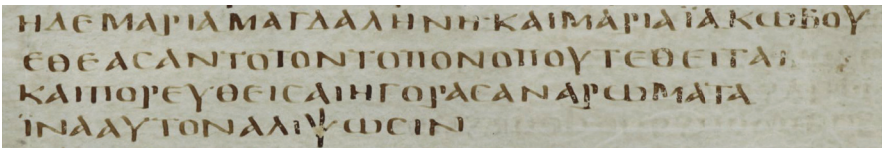 ΗΔΕΜΑΡΙΑΜΑΓΔΑΛΗΝΗΚΑΙΜΑΡΙΑΪΑΚΩΒΟΥ
ΕΘΕΑϹΑΝΤΟΤΟΝΤΟΠΟΝΟΠΟΥΤΕΘΕΙΤΑΙ
ΚΑΙΠΟΡΕΥΘΕΙϹΑΙΗΓΟΡΑϹΑΝΑΡΩΜΑΤΑ
ΪΝΑΑΥΤΟΝΑΛΙΨΩϹΕΙΝ